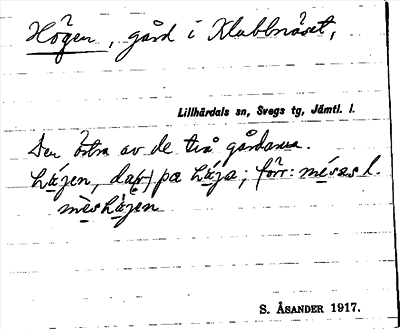 Högen, gård i Klubbnäset,
Lillhärdals sn, Svegs tg, Jämtl. l.
Den östra av de två gårdarna.
hä́jen, da(r) pa hä́ja; förr: mésəs l.
mèshä́jen
S. ÅSANDER 1917.